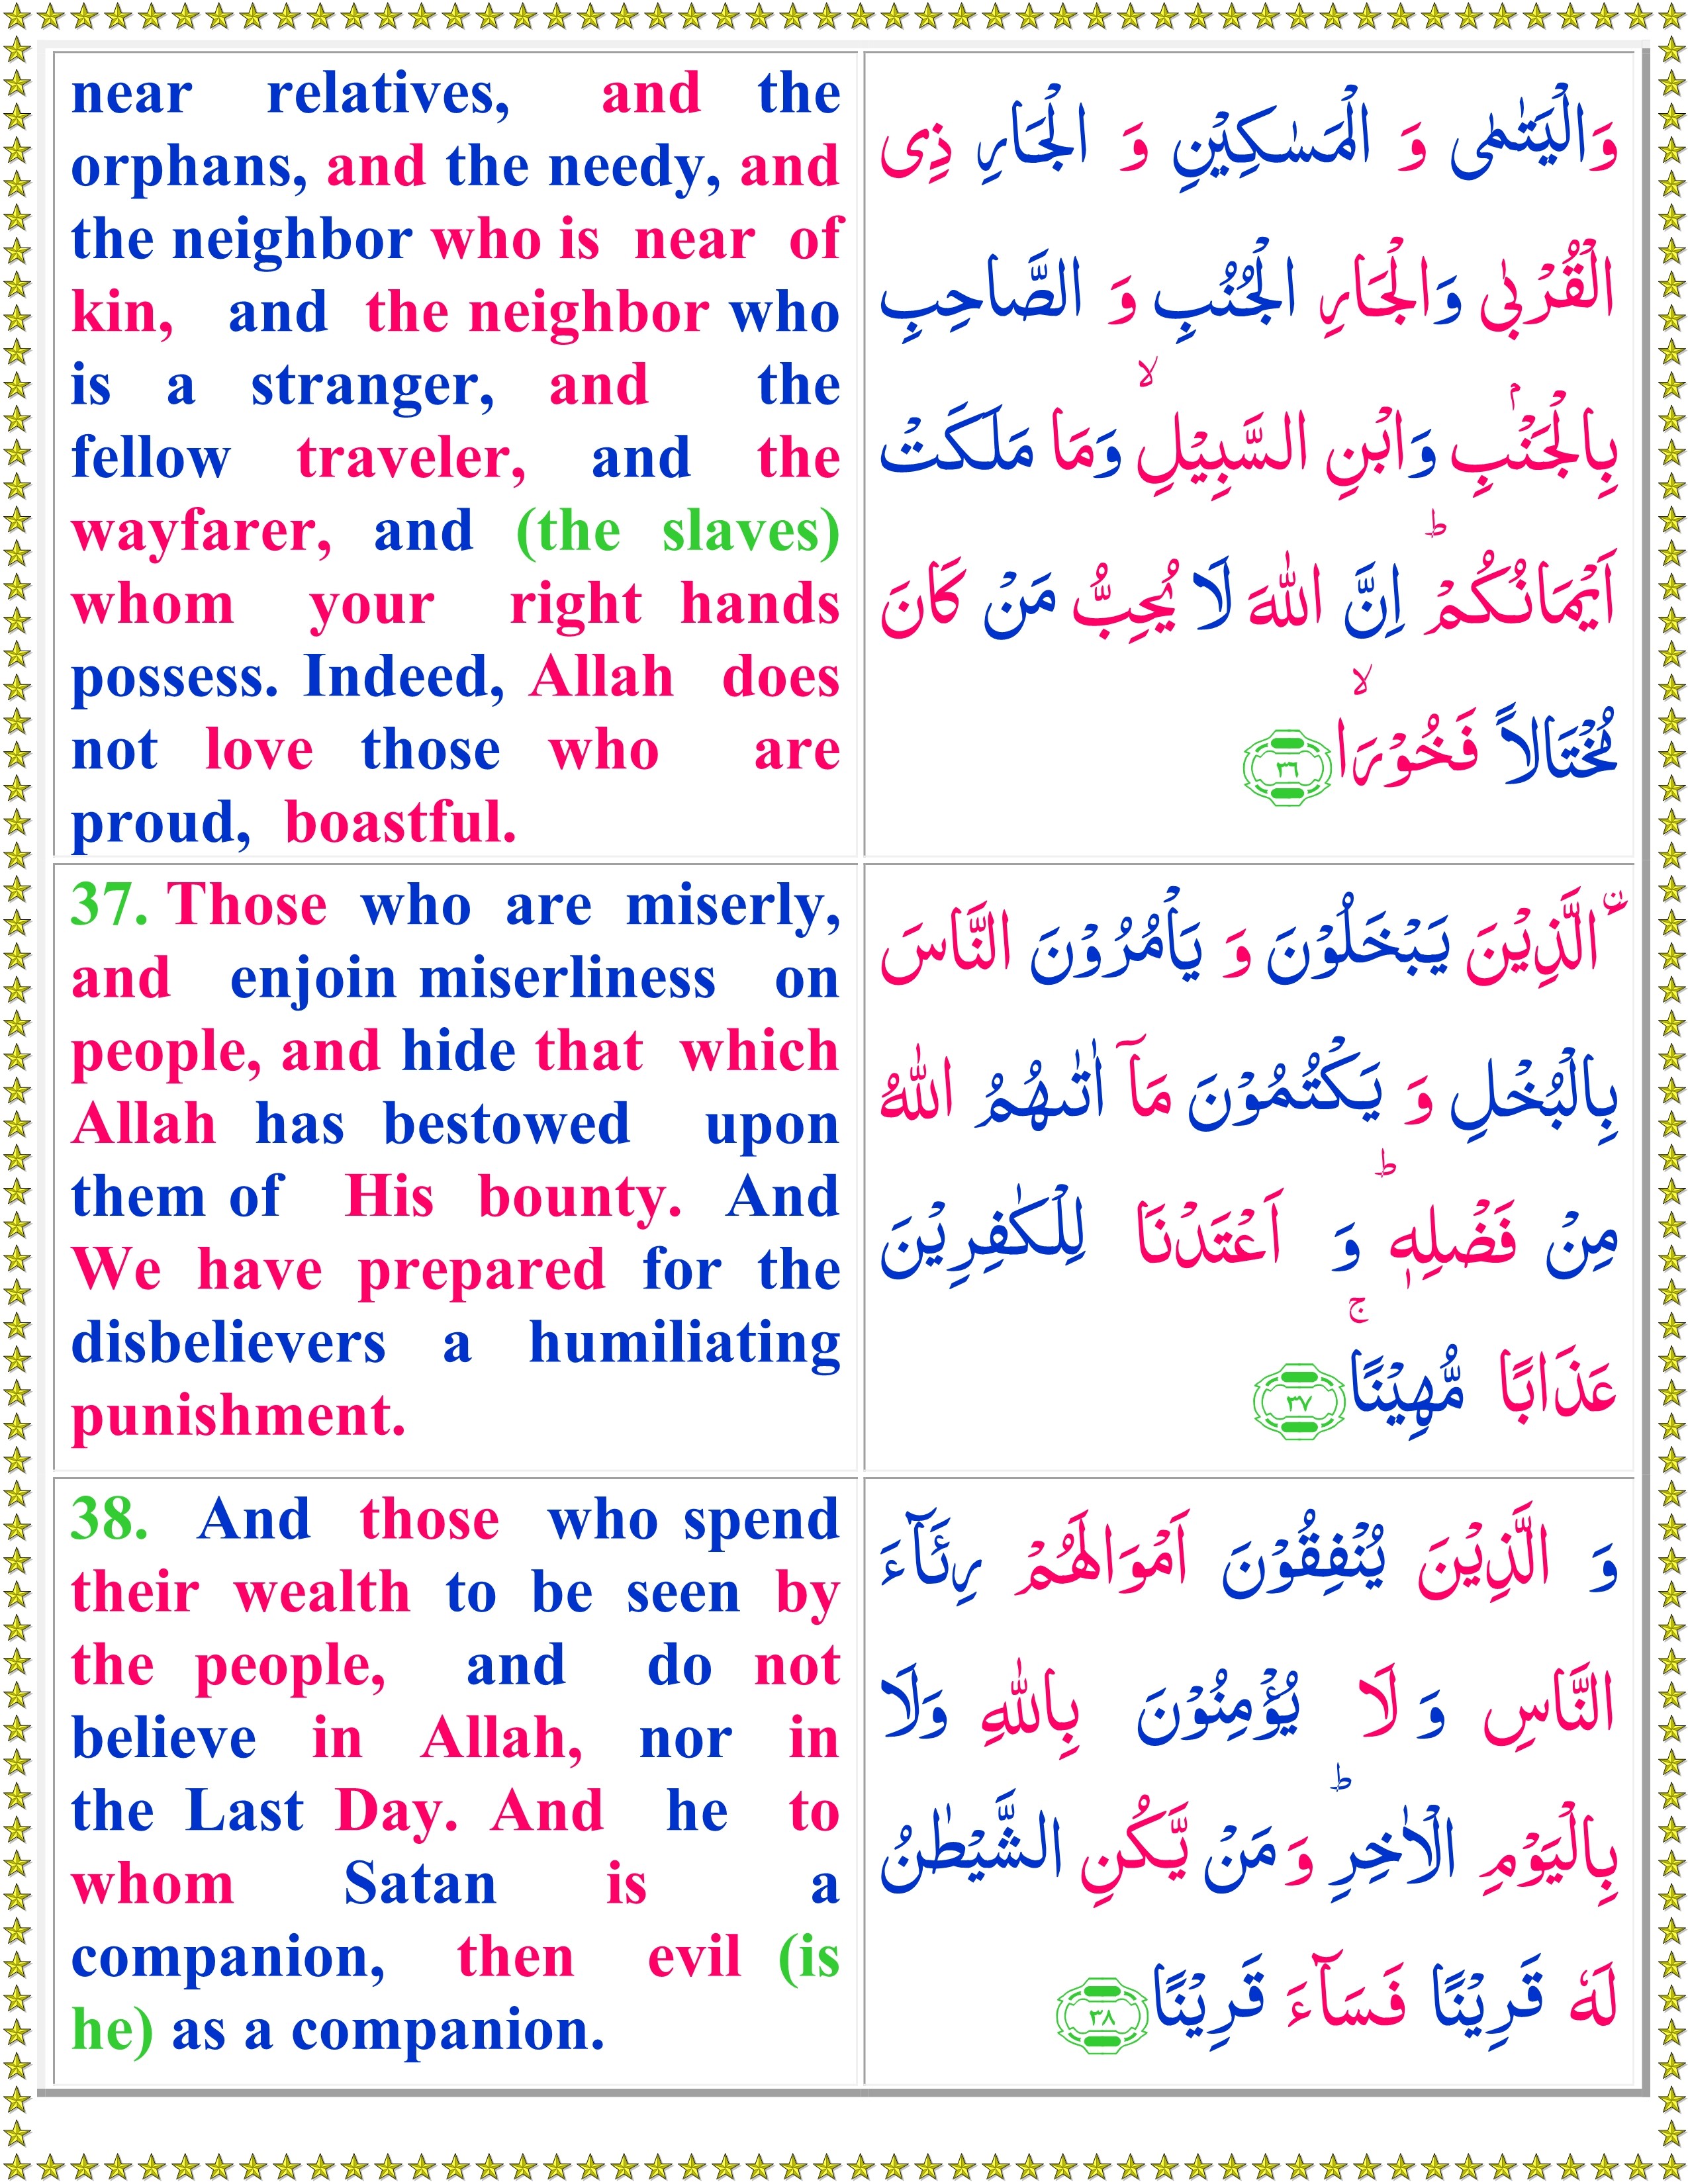 near relatives, and the
orphans, and the needy, and
the neighbor who is near of
kin, and the neighbor who
is a stranger, and the
fellow traveler, and the
wayfarer, and (the slaves)
whom your right hands
possess. Indeed, Allah does
not love those who are
proud, boastful.
وَالْيَتٰمٰى وَ الْمَسٰكِيْنِ وَ الْجَارِ ذِى
الْقُرْبٰى وَالْجَارِ الْجُنُبِ وَ الصَّاحِبِ
بِالْجَنْۢبِ وَابْنِ السَّبِيْلِ ۙ وَمَا مَلَكَتْ
اَيْمَانُكُمْ ؕ اِنَّ اللّٰهَ لَا يُحِبُّ مَنْ كَانَ
مُخْتَالاً فَخُوْرَا ۙ ﴿۳۶﴾
37. Those who are miserly,
and enjoin miserliness on
people, and hide that which
Allah has bestowed upon
them of His bounty. And
We have prepared for the
disbelievers a humiliating
punishment.
ۨالَّذِيْنَ يَبْخَلُوْنَ وَ يَاْمُرُوْنَ النَّاسَ
بِالْبُخْلِ وَ يَكْتُمُوْنَ مَاۤ اٰتٰٮهُمُ اللّٰهُ
مِنْ فَضْلِهٖ ؕ وَ اَعْتَدْنَا لِلْكٰفِرِيْنَ
عَذَابًا مُّهِيْنًا ۚ ﴿۳۷﴾
38. And those who spend
their wealth to be seen by
the people, and do not
believe in Allah, nor in
the Last Day. And he to
whom Satan is a
companion, then evil (is
he) as a companion.
وَ الَّذِيْنَ يُنْفِقُوْنَ اَمْوَالَهُمْ رِئَآءَ
النَّاسِ وَ لَا يُؤْمِنُوْنَ بِاللّٰهِ وَلَا
بِالْيَوْمِ الْاٰخِرِ ؕ وَ مَنْ يَّكُنِ الشَّيْطٰنُ
لَهٗ قَرِيْنًا فَسَآءَ قَرِيْنًا ﴿۳۸﴾